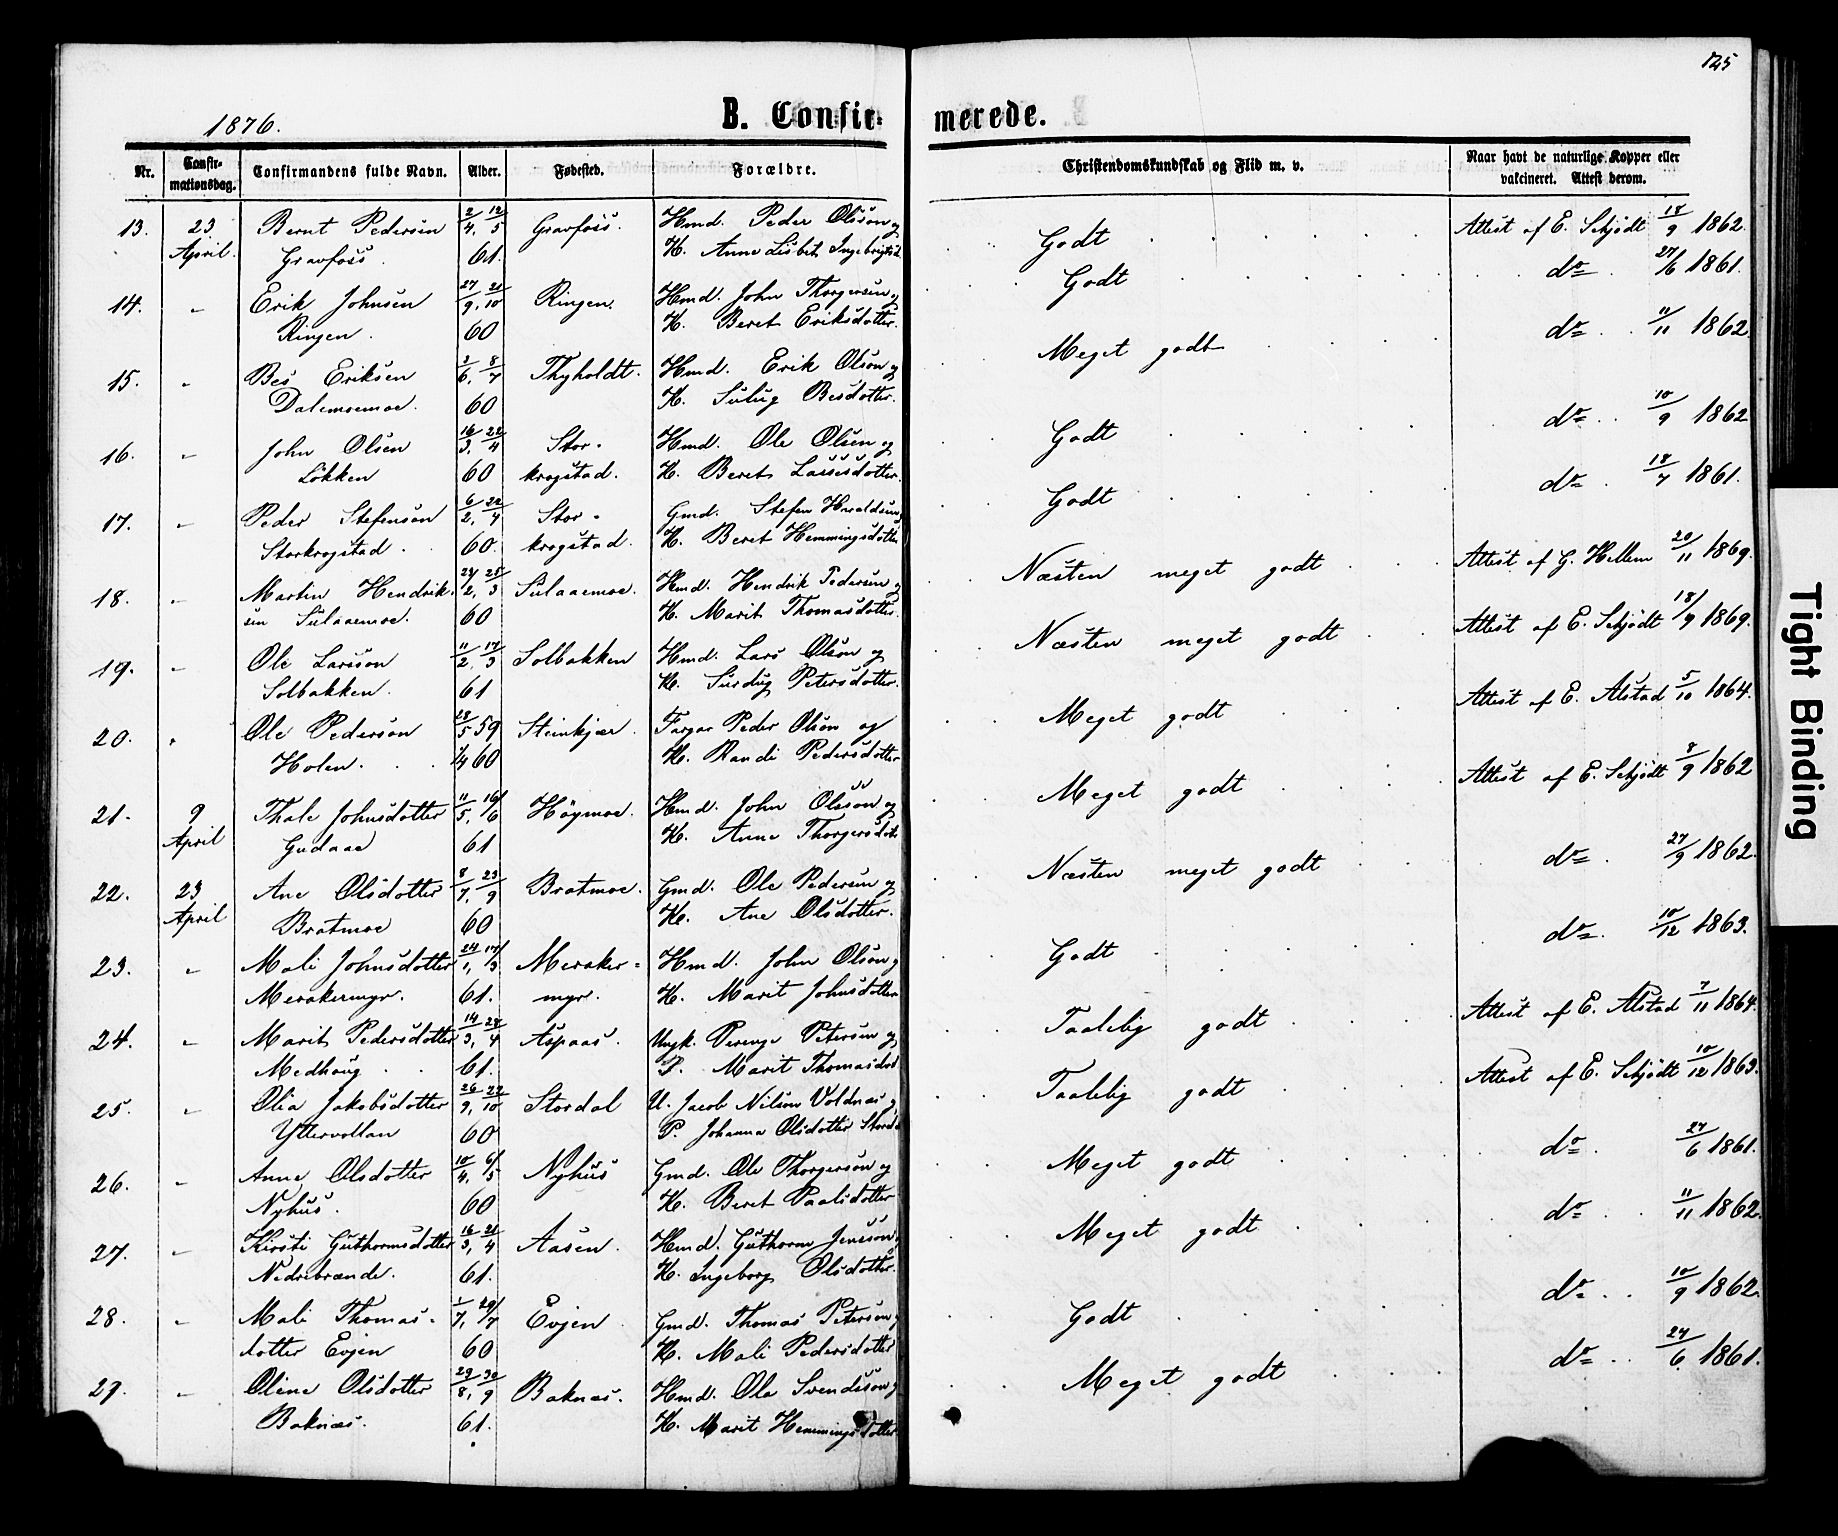 125
1876.
B. Confir- merede.
Nr. Confir-mationsdag. Confirmandens fulde Navn. Alder. Fødested. Forældre. Christendomskundskab og Flid m. v. Naar havt de naturlige Kopper eller vakcineret. Attest derom.
13. 23 Bernt Pedersen 2/4, 12/5 Gravfoss. Hmd. Peder Olsson og Godt Attest af E. Schjödt 18/9 1862.
April. Gravfoss. 61. K. Anne Lisbet
14. " Erik Johnsen 27/9, 21/10 Ringen. Hmd. John Thorgersen og Godt do 27/6 1861.
Ringen. 60 K. Beret Eriksdotter.
15. " Bes Eriksen 8/7 Thyholdt. Hmd. Erik Olson og Meget godt do 11/11 1862
Dalemoemoe. 60 K. Besdotter.
16. " John Olsen 16/3, 22/4 Stor- Hmd. Ole Olsen og Godt do 10/9 1862
Løkken 60 krogstad. K. Beret Lassesdotter.
17. " Peder Stefenson 6/2, 22/4 Stor- Gmd. Stefen Godt do 18/7 1861.
Storkrogstad. 60. krogstad. K. Beret Hemmingsdotter
18. " Martin Hendrik- 25/3 Sulaaemoe. Hmd. Hendrik Pedersen og Næsten meget godt Attest af G. Hellem 20/11 1869.
sen Sulaaemoe. 60 K. Marit Thomasdotter.
19. " Ole Larsson 11/2, 17/3 Solbakken Hmd. Lars Olson og Næsten meget godt Attest af E. Schjödt 18/9 1869.
Solbakken. 61 K. Petersdotter.
20. " Ole Pederson 28/5 59 Steinkjær. Peder Olson og Meget godt Attest af E. Alstad 5/10 1864.
Holen. 1/4 60 K. Randi Pedersdotter
21. 9 Thale Johnsdotter 11/5, 16/6 Högmoe. Hmd. John Olsson og Meget godt Attest af E. Schjödt 8/9 1862
April Gudaae 61 K. Anne
22. 23 Ane Olsdotter 8/7, 23/9 Bratmoe. Gmd. Ole Pedersen og Næsten meget godt do 27/9 1862.
April Bratmoe 60 K. Ane Olsdotter.
23. " Mali Johnsdotter 24/1, 17/3 Meraker- Hmd. John Olson og Godt do 10/12 1863.
Merakermyr. 61. myr. K. Marit Johnsdotter
24. " Marit Pedersdotter 14/3, 28/4 Aspaas. Ungk. Petersen og Taalelig godt Attest af E. Alstad 7/11 1864.
Medhaug 61. P. Marit
25. " Olia Jakobsdotter 26/9, 22/10 Stordal U. Jacob Nilson Voldnæs og Taalelig godt Attest af E. Schjödt 10/12 1863.
Yttervollan 60 P. Johanna Olsdotter
26. " Anne Olsdotter 10/4, 6/5 Nyhus Gmd. Ole Thorgerson og Meget godt do 27/6 1861.
Nyhus. 60 K. Beret Paalsdotter
27. " Kirsti Guthormsdotter 16/3, 21/4 Aasen. Hmd. Guthorm Jensson Meget godt do 11/11 1862.
Nedrebrænde. 61. K. Ingeborg Olsdotter.
28. " Mali Thomas- 1/7, 29/7 Evjen Gmd. Thomas Peterson Godt do 10/9 1862.
dotter Evjen 60 K. Mali Pedersdotter
29. " Oline Olsdotter 23/8, 30/9 Baknæs. Hmd. Ole Svendsson Meget godt do 27/6 1861.
Baknæs. 61. K. Marit Hemmingsdotter
Tight Binding